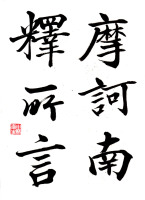 摩訶南
釋所言